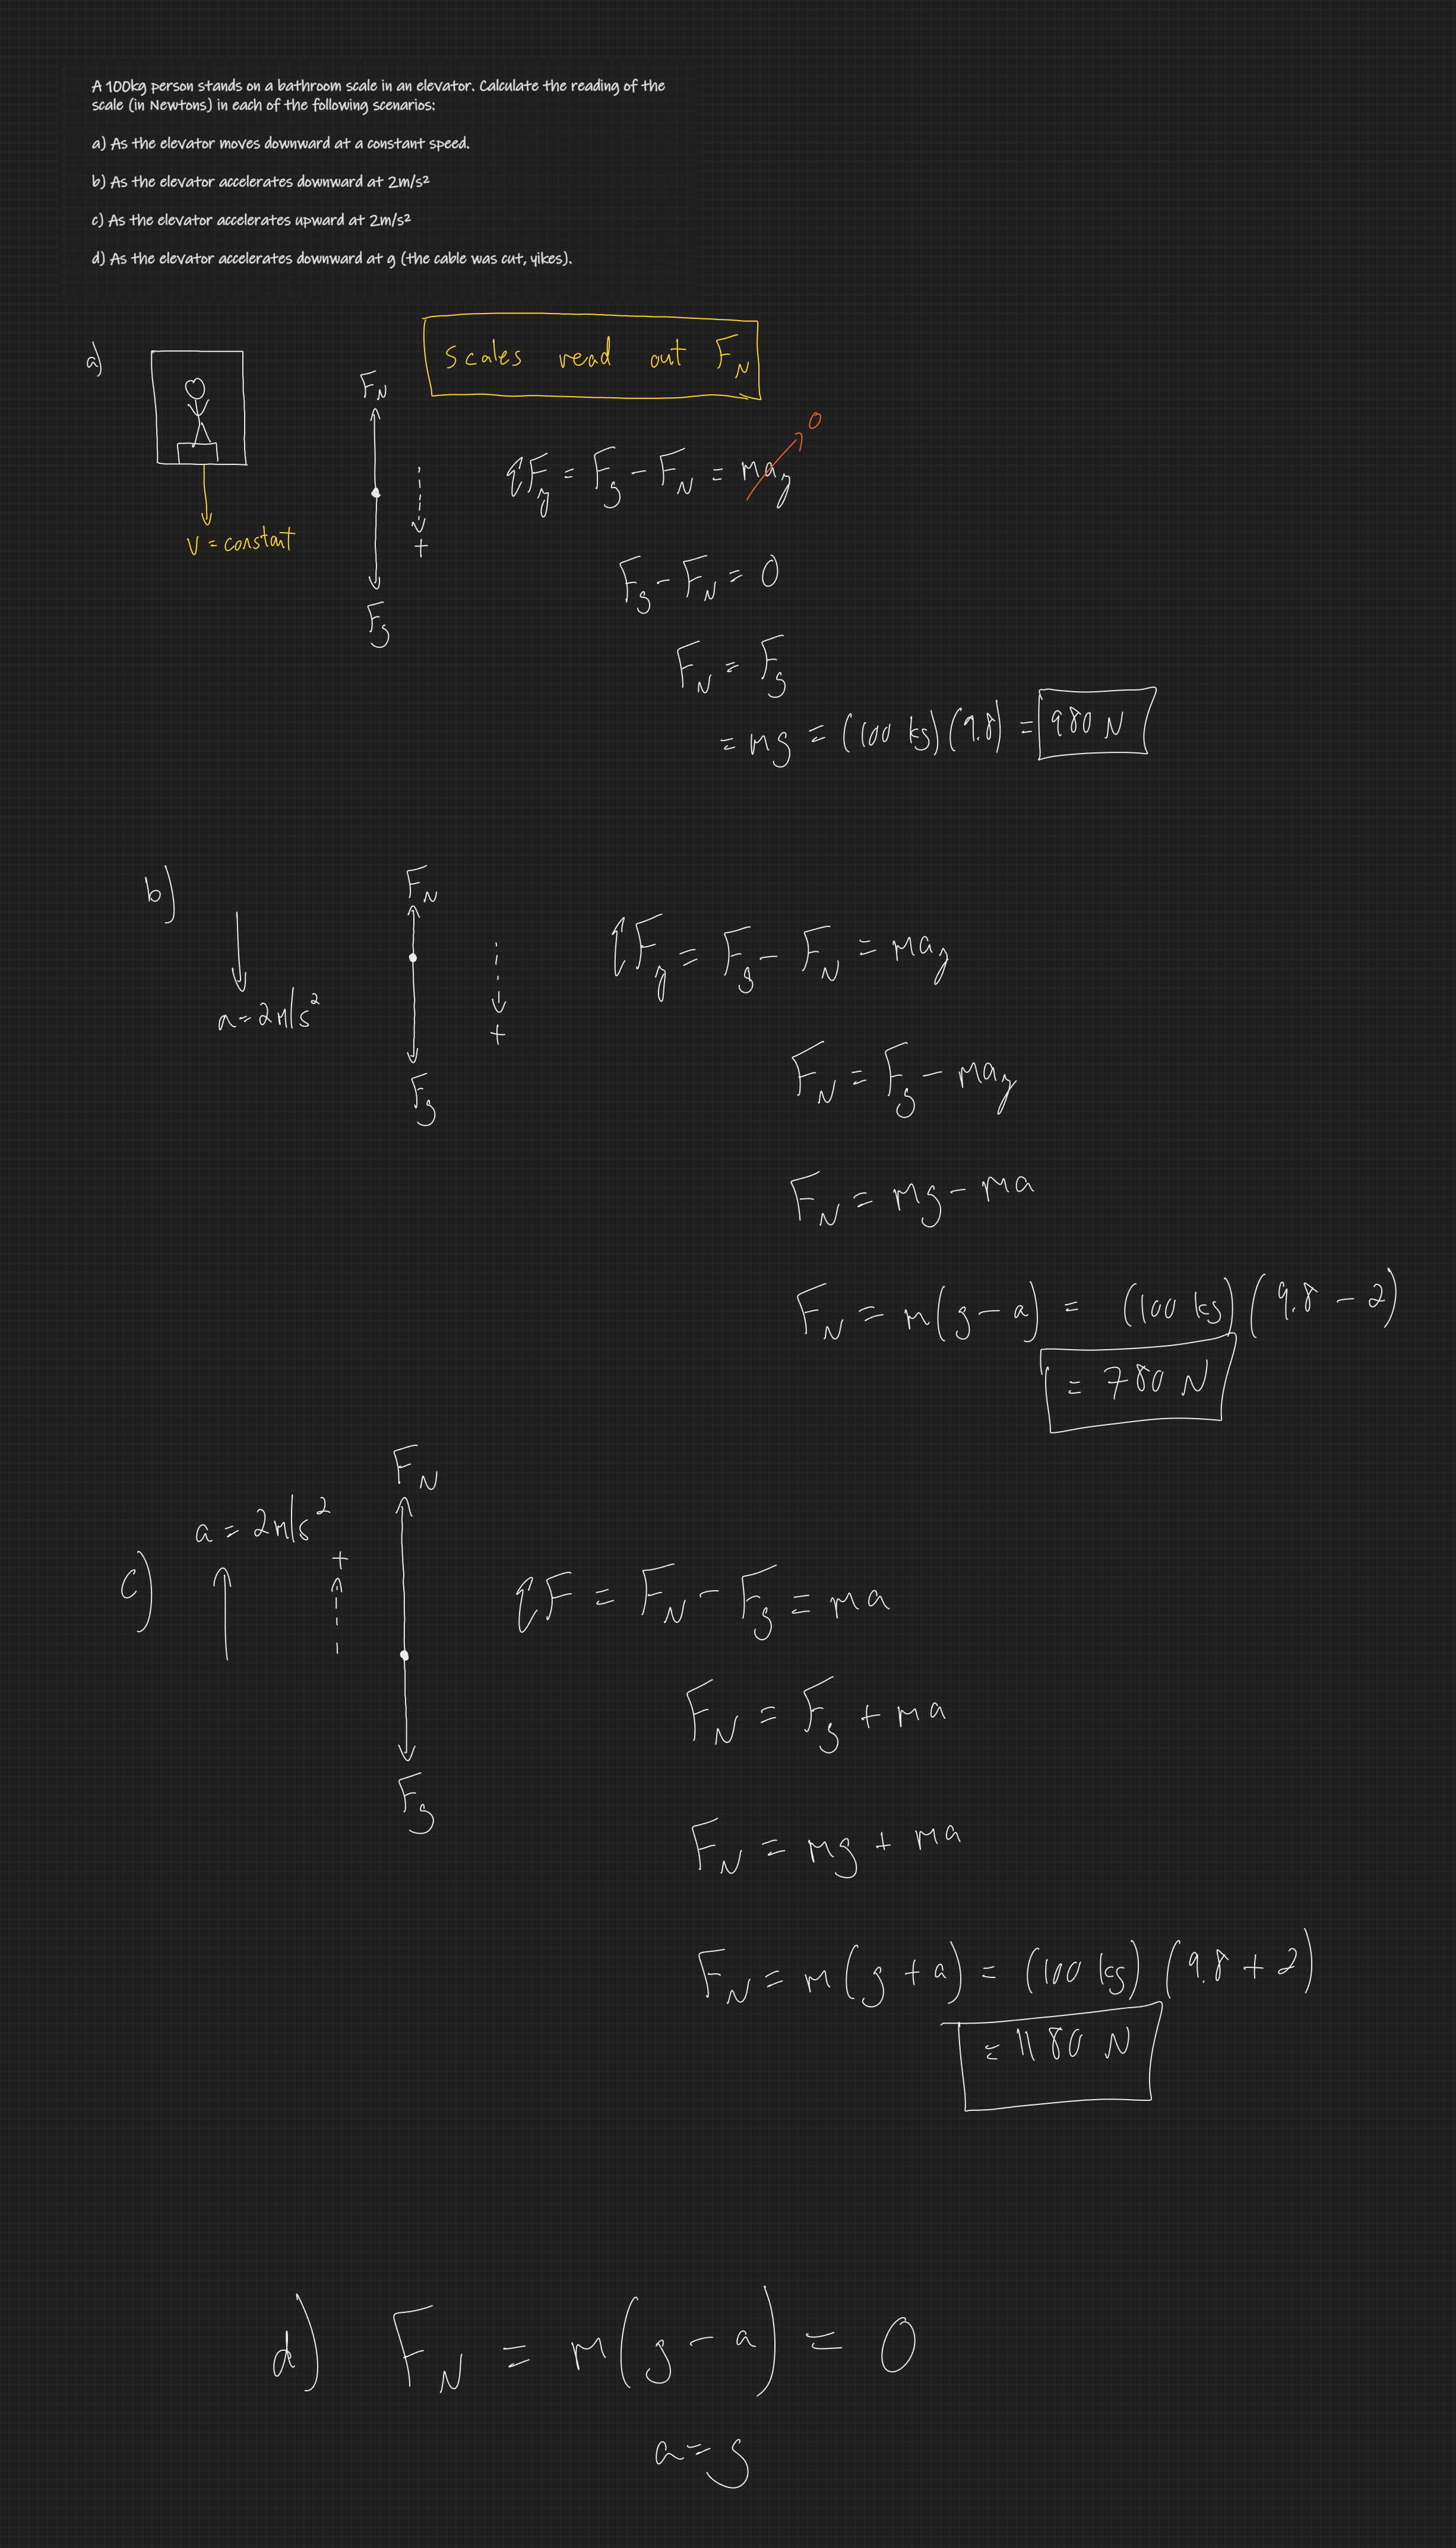 A 100kg person stands on a bathroom scale in an elevator. Calculate the reading of the
scale (in Newtons) in each of the following scenarios:
a) As the elevator moves downward at a constant speed.
b) As the elevator accelerates downward at 2m/s²
c) As the elevator accelerates upward at 2m/s²
d) As the elevator accelerates downward at g (the cable was cut, yikes).
Scales read out F_N
a)
V = constant
F_N
+
F_g
ΣF_y = F_g - F_N = ma_y 0
F_g - F_N = 0
F_N = F_g
= mg = (100 kg)(9.8) = 980 N
b)
a = 2m/s²
F_N
+
F_g
ΣF_y = F_g - F_N = ma_y
F_N = F_g - ma_y
F_N = mg - ma
F_N = m(g - a) = (100 kg)(9.8 - 2)
= 780 N
c)
a = 2m/s²
+
F_N
F_g
ΣF = F_N - F_g = ma
F_N = F_g + ma
F_N = mg + ma
F_N = m(g + a) = (100 kg)(9.8 + 2)
= 1180 N
d) F_N = m(g - a) = 0
a = g